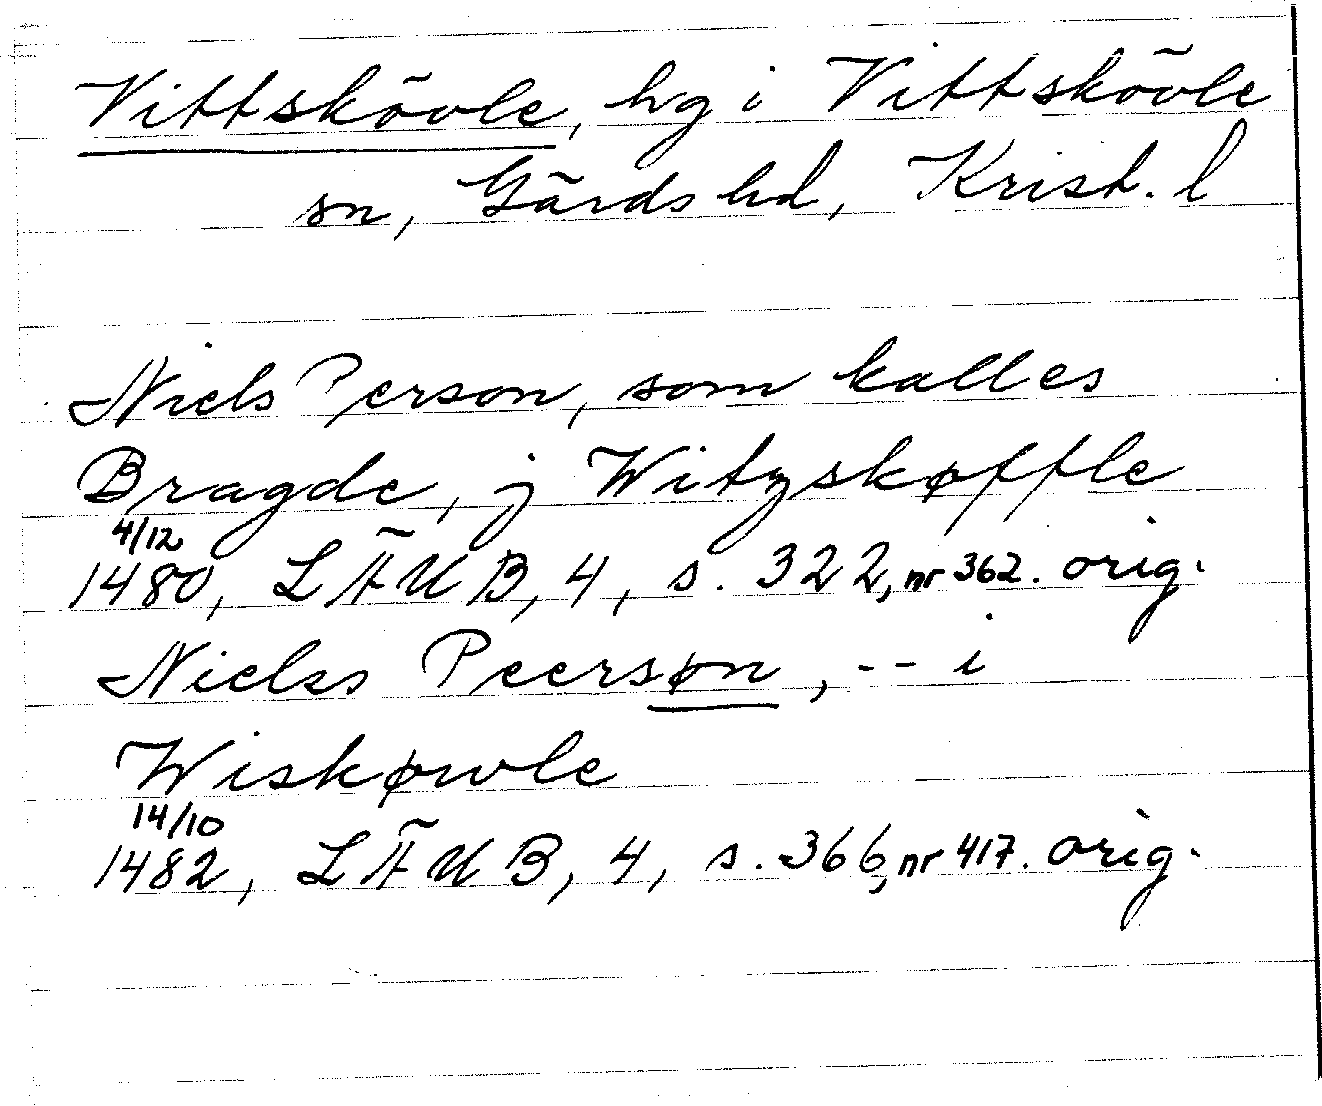 Vittskövle, hg i Vittskövle
sn, Gärds hd, Krist. l
Niels Person, som kalles
Bragde, j Witzskøffle
4/12
1480, LÄUB, 4, s. 322, nr 362. orig.
Nielss Peersøn, -- i
Wiskøwle
14/10
1482, LÄUB, 4, s. 366, nr 417. orig.